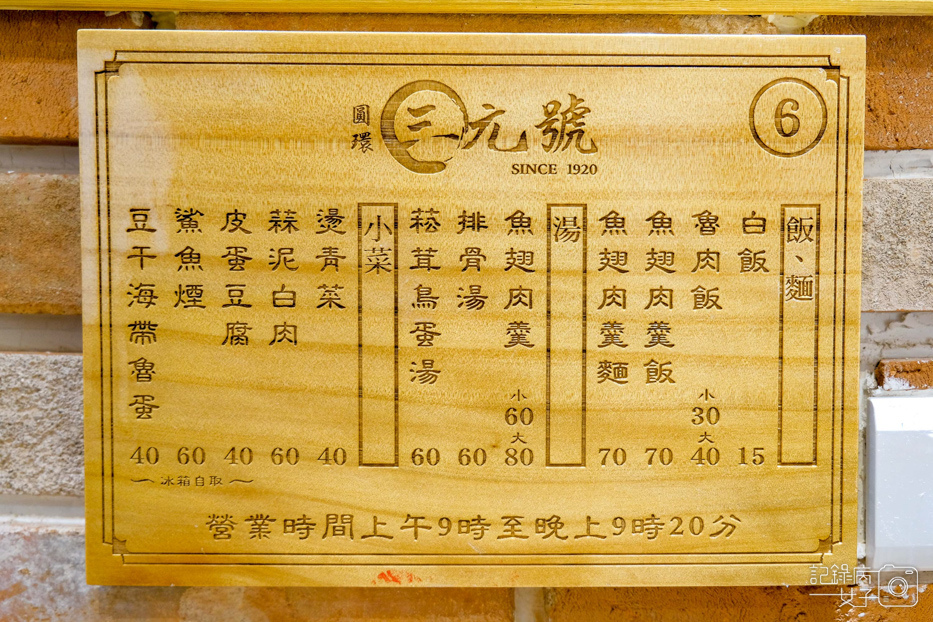 圓環
三元號
SINCE 1920
6
飯、麵
白飯 15
魯肉飯 小30 大40
魚翅肉羹飯 70
魚翅肉羹麵 70
湯
魚翅肉羹 小60 大80
排骨湯 60
菘茸鳥蛋湯 60
小菜
燙青菜 40
蒜泥白肉 60
皮蛋豆腐 40
鯊魚煙 60
豆干海帶魯蛋 40
~冰箱自取~
營業時間上午9時至晚上9時20分
記錄店女子